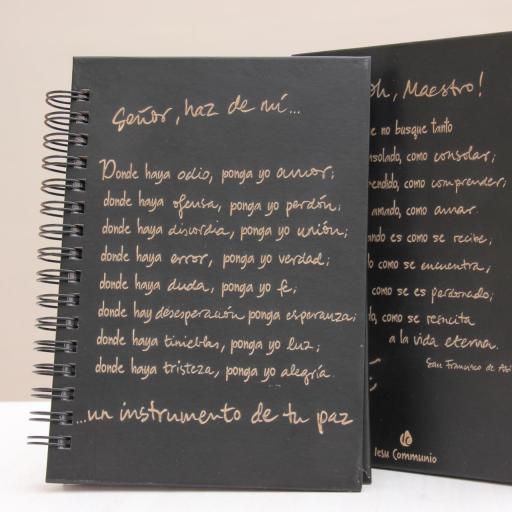 Señor, haz de mí...
Donde haya odio, ponga yo amor;
donde haya ofensa, ponga yo perdón;
donde haya discordia, ponga yo unión;
donde haya error, ponga yo verdad;
donde haya duda, ponga yo fe;
donde hay desesperación ponga esperanza;
donde haya tinieblas, ponga yo luz;
donde haya tristeza, ponga yo alegría.
...un instrumento de tu paz
oh, Maestro!
e no busque tanto
nsolado, como consolar;
endido, como comprender;
amado, como amar.
ando es como se recibe;
o como se encuentra,
como se es perdonado;
do, como se resucita
a la vida eterna.
San Francisco de Así
Iesu Communio